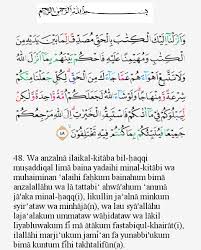 بِسْمِ اللّٰهِ الرَّحْمٰنِ الرَّحِيْمِ
وَاَنْزَلْنَآ اِلَيْكَ الْكِتٰبَ بِالْحَقِّ مُصَدِّقًا لِّمَا بَيْنَ يَدَيْهِ مِنَ
الْكِتٰبِ وَمُهَيْمِنًا عَلَيْهِ فَاحْكُمْ بَيْنَهُمْ بِمَآ اَنْزَلَ اللّٰهُ
وَلَا تَتَّبِعْ اَهْوَآءَهُمْ عَمَّا جَآءَكَ مِنَ الْحَقِّ لِكُلٍّ جَعَلْنَا مِنْكُمْ
شِرْعَةً وَّمِنْهَاجًا وَلَوْ شَآءَ اللّٰهُ لَجَعَلَكُمْ اُمَّةً وَّاحِدَةً وَّلٰكِنْ
لِّيَبْلُوَكُمْ فِيْ مَآ اٰتٰىكُمْ فَاسْتَبِقُوا الْخَيْرٰتِ اِلَى اللّٰهِ مَرْجِعُكُمْ
جَمِيْعًا فَيُنَبِّئُكُمْ بِمَا كُنْتُمْ فِيْهِ تَخْتَلِفُوْنَ ٤٨
48. Wa anzalnā ilaikal-kitāba bil-ḥaqqi
muṣaddiqal limā baina yadaihi minal-kitābi wa
muhaiminan 'alaihi faḥkum bainahum bimā
anzalallāhu wa lā tattabi' ahwā'ahum 'ammā
jā'aka minal-ḥaq(qi), likullin ja'alnā minkum
syir'ataw wa minhājā(n), wa lau syā'allāhu
laja'alakum ummataw wāḥidataw wa lākil
liyabluwakum fī mā ātākum fastabiqul-khairāt(i),
ilallāhi marji'ukum jamī'an fa yunabbi'ukum
bimā kuntum fīhi takhtalifūn(a).